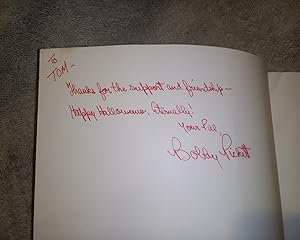 To
Tom -
Thanks for the support and friendship -
Happy Halloweens, Eternally!
Your Pal
Bobby Pickett